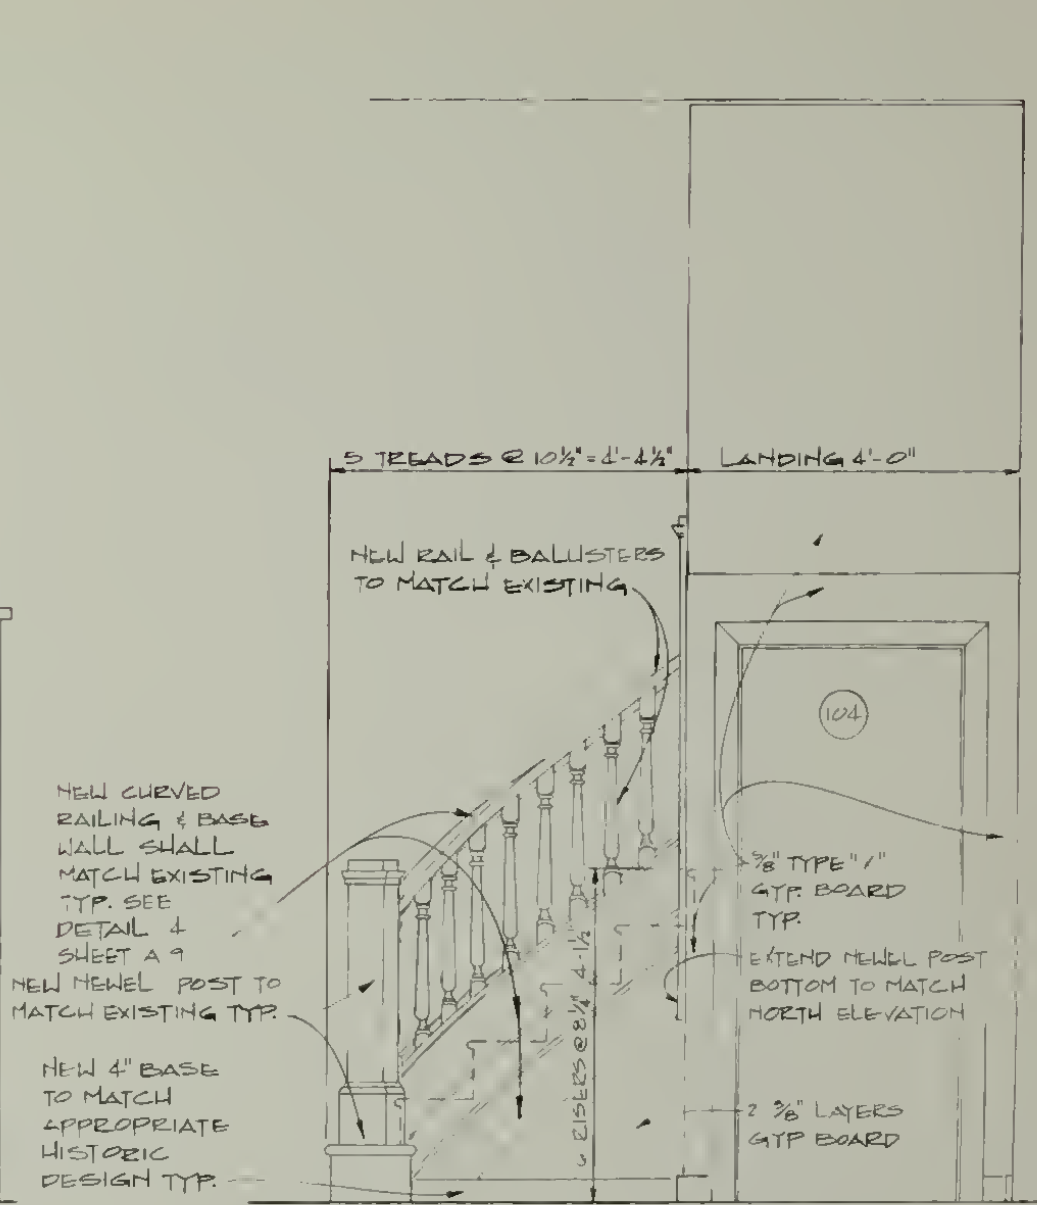 5 TREADS @ 10½" = 4'-4½"
LANDING 4'-0"
NEW RAIL & BALUSTERS
TO MATCH EXISTING
104
NEW CURVED
RAILING & BASE
WALL SHALL
MATCH EXISTING
TYP. SEE
DETAIL 4
SHEET A 9
NEW NEWEL POST TO
MATCH EXISTING TYP.
NEW 4" BASE
TO MATCH
APPROPRIATE
HISTORIC
DESIGN TYP.
RISERS @ 8¼" 4'-1½"
⅝" TYPE
GYP. BOARD
TYP.
EXTEND NEWEL POST
BOTTOM TO MATCH
NORTH ELEVATION
2 ⅝" LAYERS
GYP BOARD